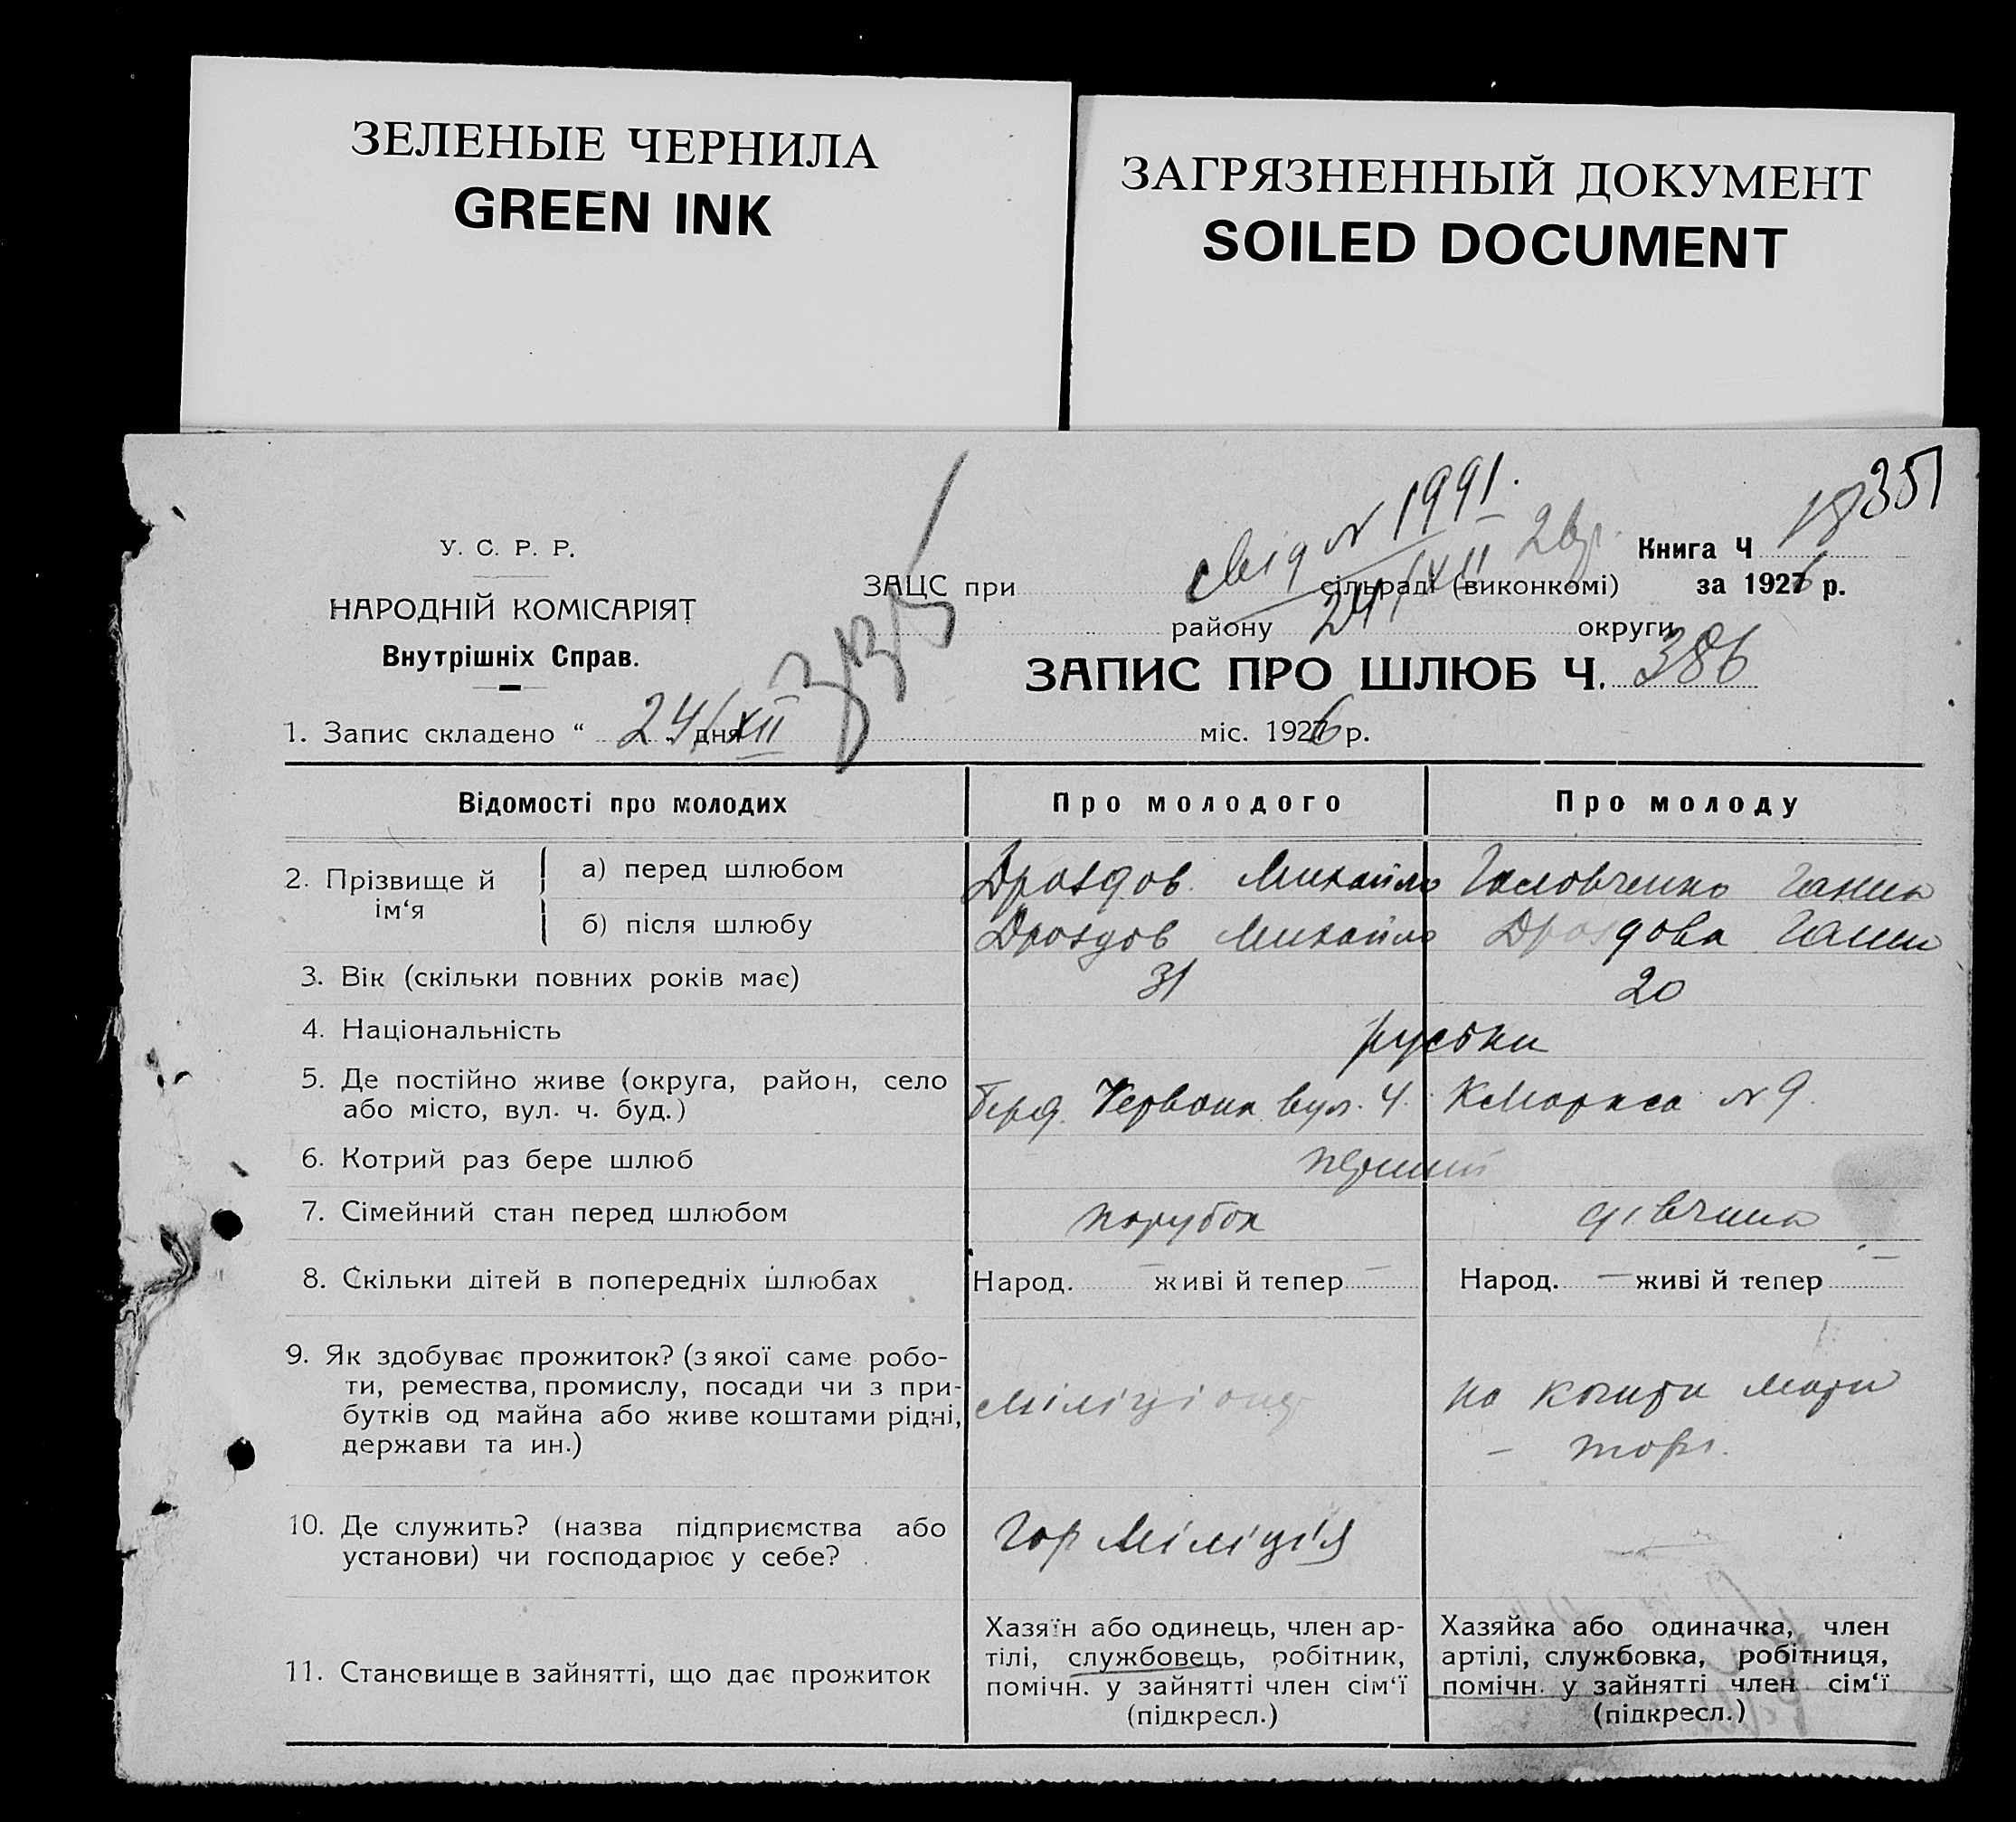 ЗЕЛЕНЫЕ ЧЕРНИЛА
GREEN INK
ЗАГРЯЗНЕННЫЙ ДОКУМЕНТ
SOILED DOCUMENT
351
свід N 1991.
24/XII
У. С. Р. Р.
НАРОДНІЙ КОМІСАРІЯТ
Внутрішніх Справ.
335
Книга Ч 18
ЗАЦС при сільраді (виконкомі) за 1926 р.
району округи
ЗАПИС ПРО ШЛЮБ Ч. 386
1. Запис складено “ 24/XII дня міс. 1926 р.
Відомості про молодих Про молодого Про молоду
2. Прізвище й ім‘я
а) перед шлюбом Дроздов Михайло Головченко Ганна
б) після шлюбу Дроздов Михайло Дроздова Ганна
3. Вік (скільки повних років має) 31 20
4. Національність руські
5. Де постійно живе (округа, район, село
або місто, вул. ч. буд.) Берд. Червона вул. 4. КМаркса N 9.
6. Котрий раз бере шлюб перший
7. Сімейний стан перед шлюбом парубок дівчина
8. Скільки дітей в попередніх шлюбах Народ. — живі й тепер — Народ. — живі й тепер —
9. Як здобуває прожиток? (з якої саме робо-
ти, ремества, промислу, посади чи з при-
бутків од майна або живе коштами рідні,
держави та ин.)
міліціонер
на кошти мати
— торг.
10. Де служить? (назва підприємства або
установи) чи господарює у себе?
Гор міліція
—
11. Становище в зайнятті, що дає прожиток
Хазяїн або одинець, член ар-
тілі, службовець, робітник,
помічн. у зайнятті член сім‘ї
(підкресл.)
Хазяйка або одиначка, член
артілі, службовка, робітниця,
помічн. у зайнятті член сім‘ї
(підкресл.)